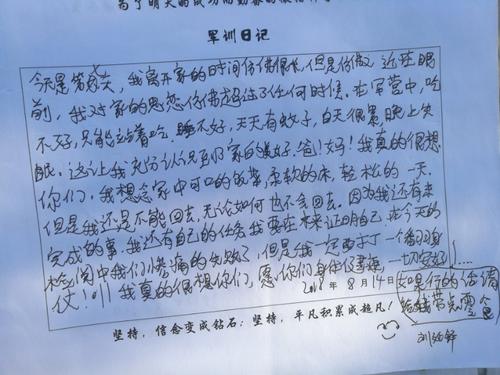 军训日记
今天是第六天，我离开家的时间仿佛很长，但是仿佛又近在眼
前，我对家的思念仿佛超过了任何时候。在军营中，吃
不好，只能站着吃，睡不好，天天有蚊子，白天很累，晚上失
眠。这让我充分认识到了家的美好。爸！妈！我真的很想
你们，我想念家中可口的饭菜，柔软的床，轻松的一天，
但是我还是不能回去，无论如何也不会回去。因为我还有未
完成的事，我还有自己的任务，我要在未来证明自己。在今天的
检阅中我们惨痛的失败了，但是我一定要打一个翻身
仗！！！我真的很想你们，愿你们身体健康，一切安好！...
2018年8月14日
如果行的话请
给我带点零食
刘
坚持，信念变成钻石；坚持，平凡积累成超凡！